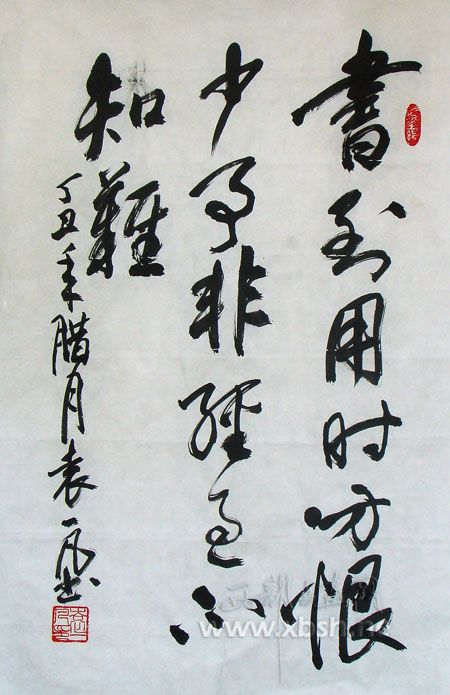 書到用时方恨
少事非經過不
知難
丁丑年腊月袁
www.xbsh.n